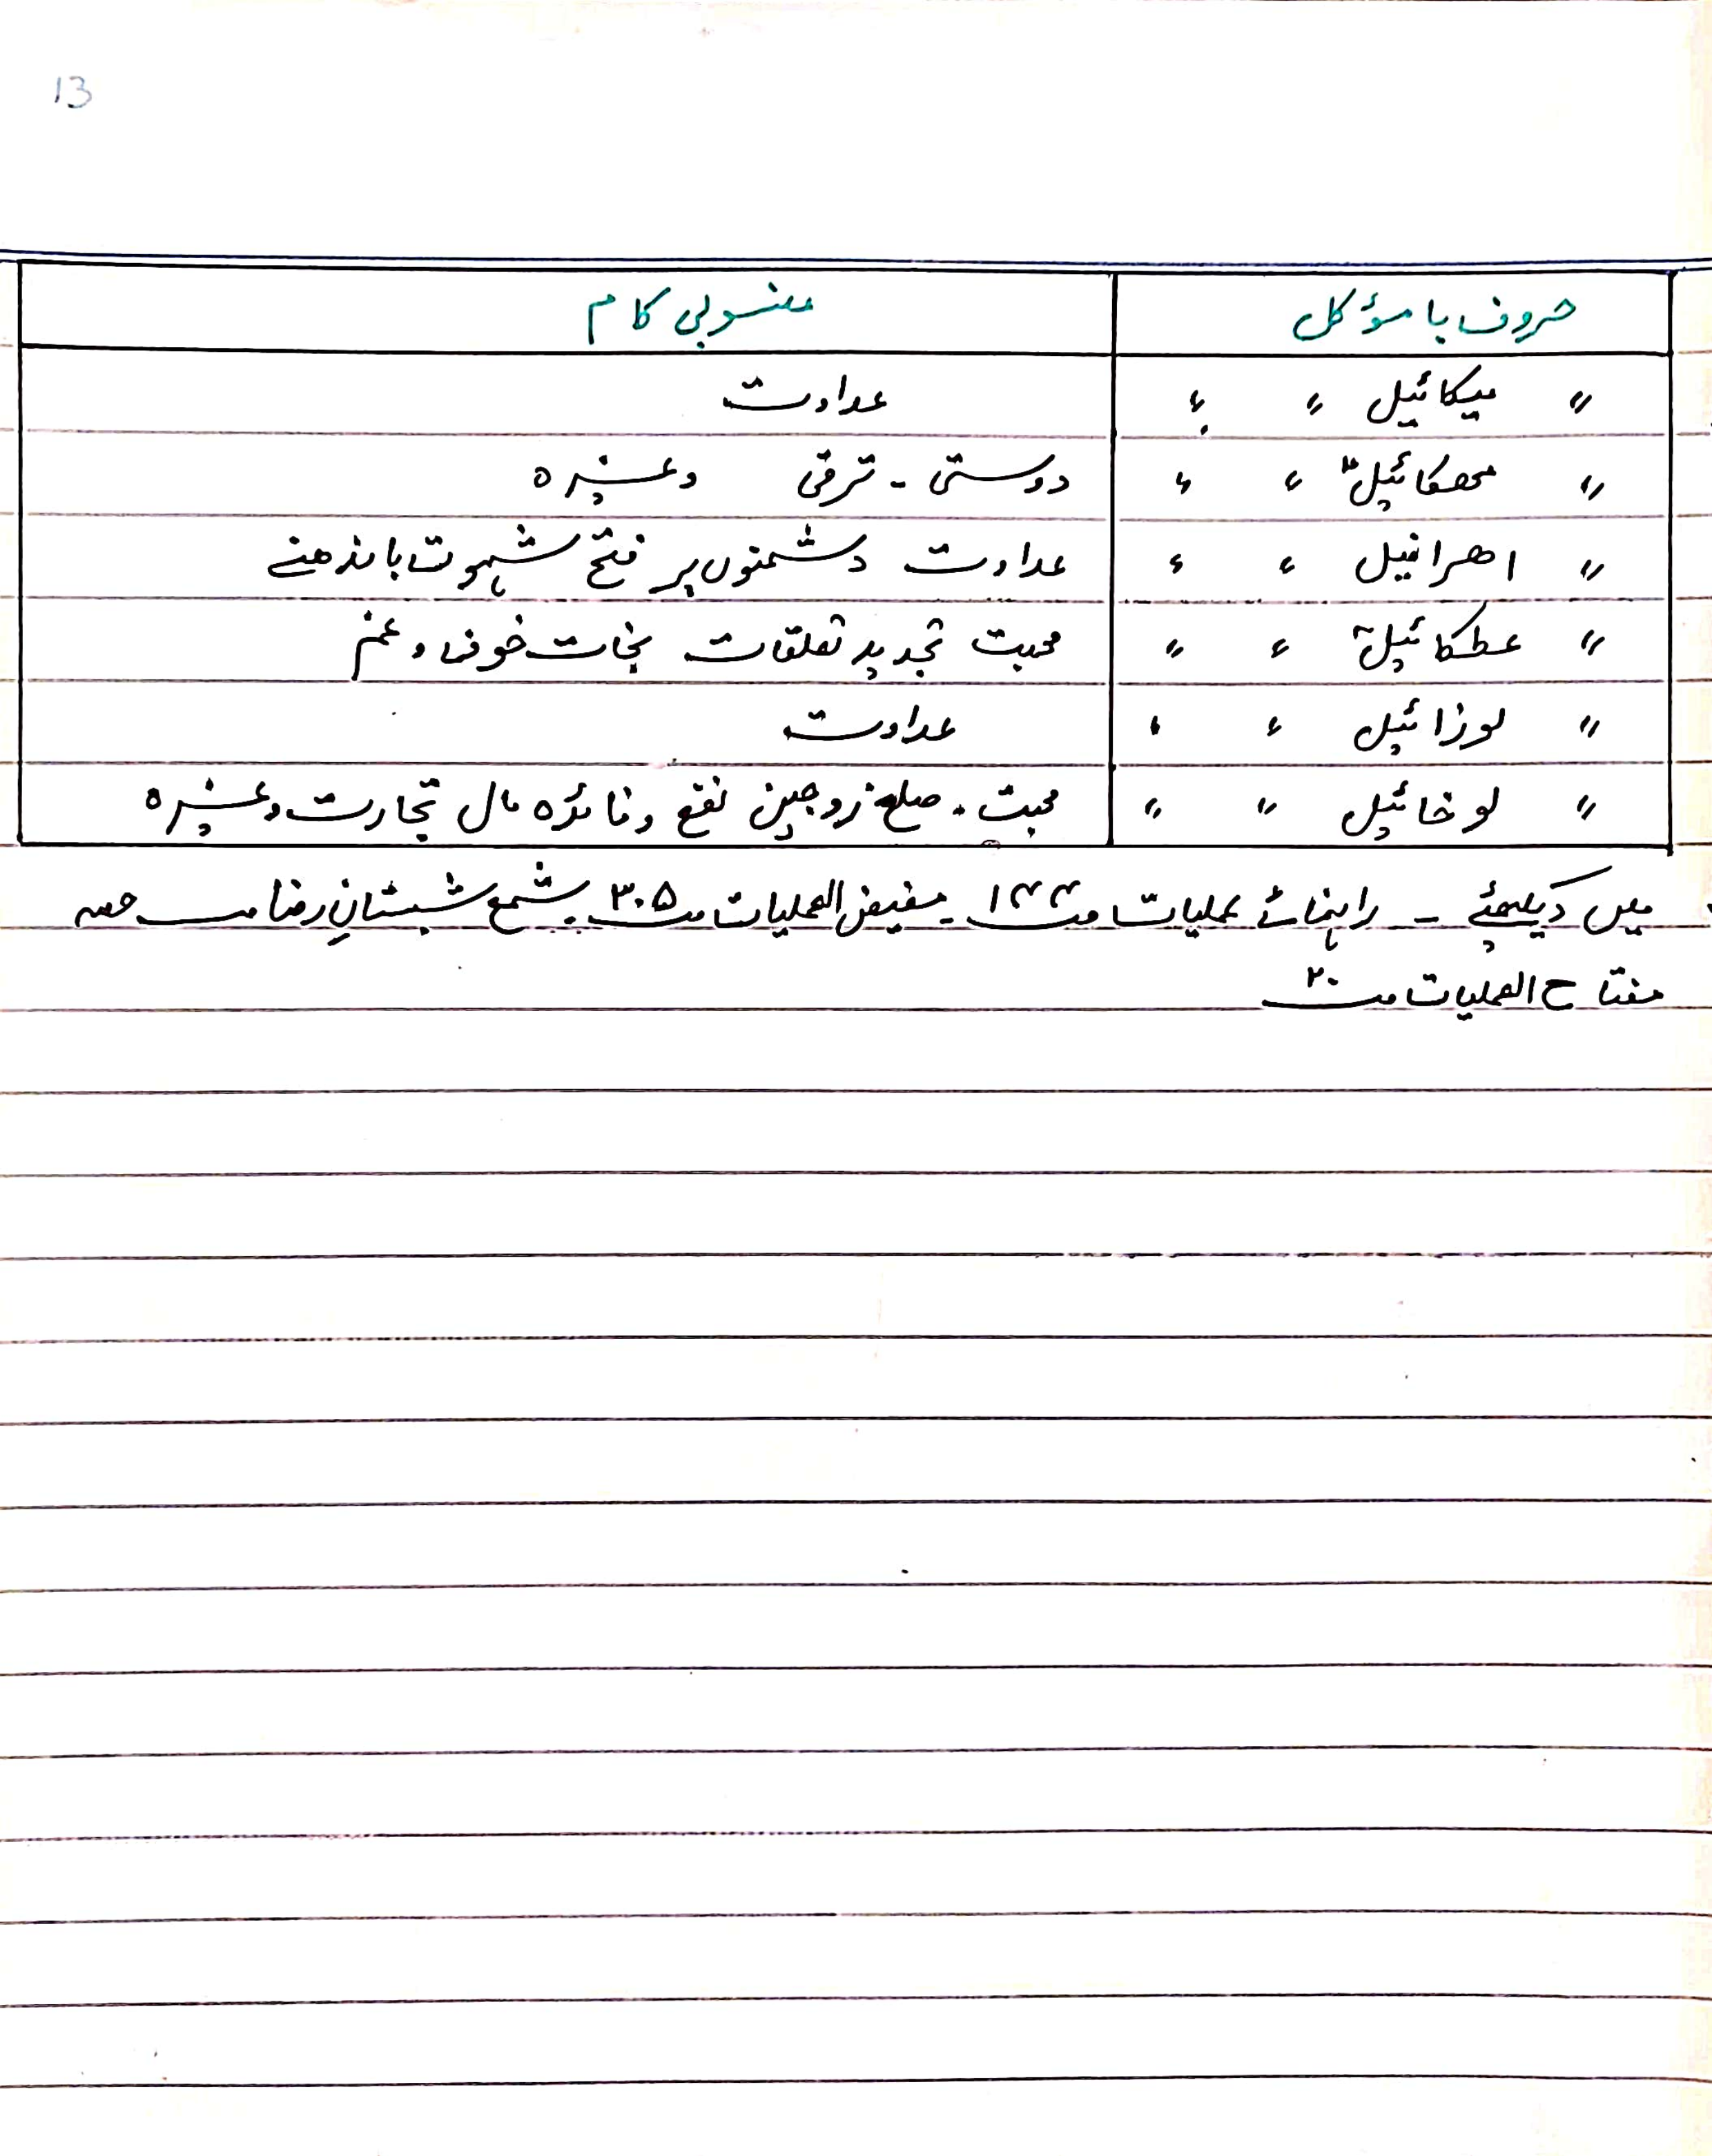 13
حروف با مؤکل منسوبی کام
〃 میکائیل 〃 〃 عداوت
〃 محکائیل 〃 〃 دوستی - ترقی وغیرہ
〃 اھرافیل 〃 〃 عداوت دشمنوں پر فتح شہوت باندھنے
〃 عطکائیل 〃 〃 محبت تجدید تعلقات نجات خوف و غم
〃 لوزائیل 〃 〃 عداوت
〃 لوخائیل 〃 〃 محبت - صلح زوجین نفع و فائدہ مال تجارت وغیرہ
میں دیکھئے - راہنمائے عملیات ص ۱۴۴ - فیض العملیات ص ۳۰۵ - شمع شبستانِ رضا
مفتاح العملیات ص ۲۰